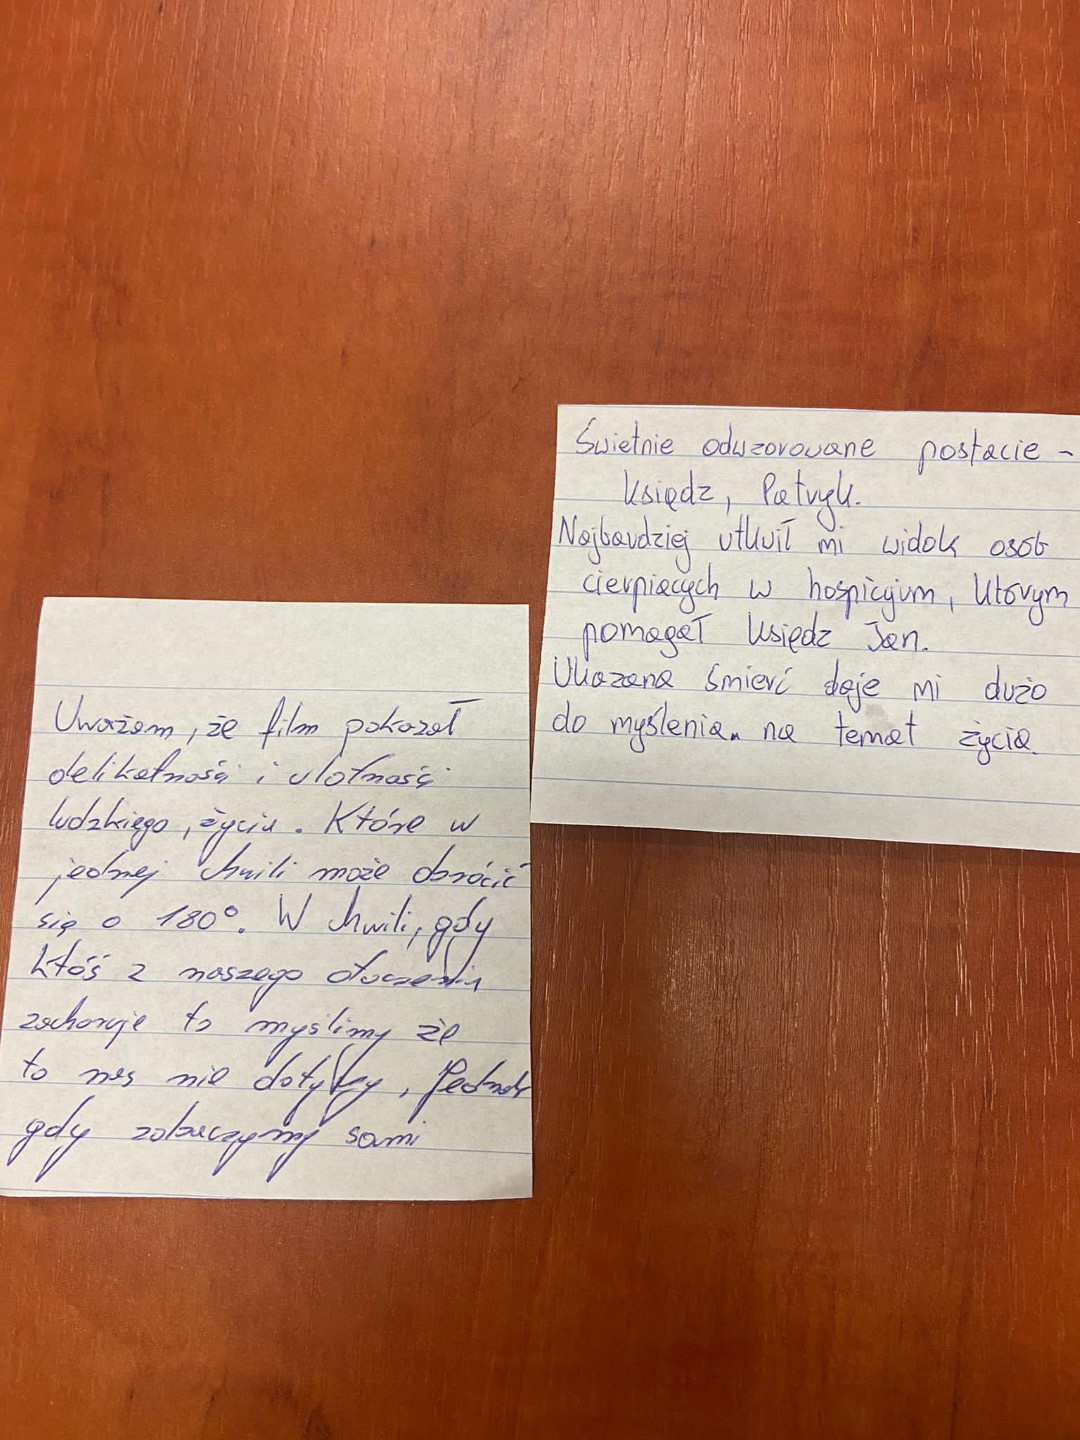 Świetnie odwzorowane postacie -
ksiądz, Patryk.
Najbardziej utkwił mi widok osób
cierpiących w hospicjum, którym
pomagał ksiądz Jan.
Ukazana śmierć daje mi dużo
do myślenia. na temat życia.
Uważam, że film pokazał
delikatność i ulotność
ludzkiego, życia. Które w
jednej chwili może obrócić
się o 180°. W chwili, gdy
ktoś z naszego otoczenia
zachoruje to myślimy że
to nas nie dotyczy, Jednak
gdy zobaczymy sami